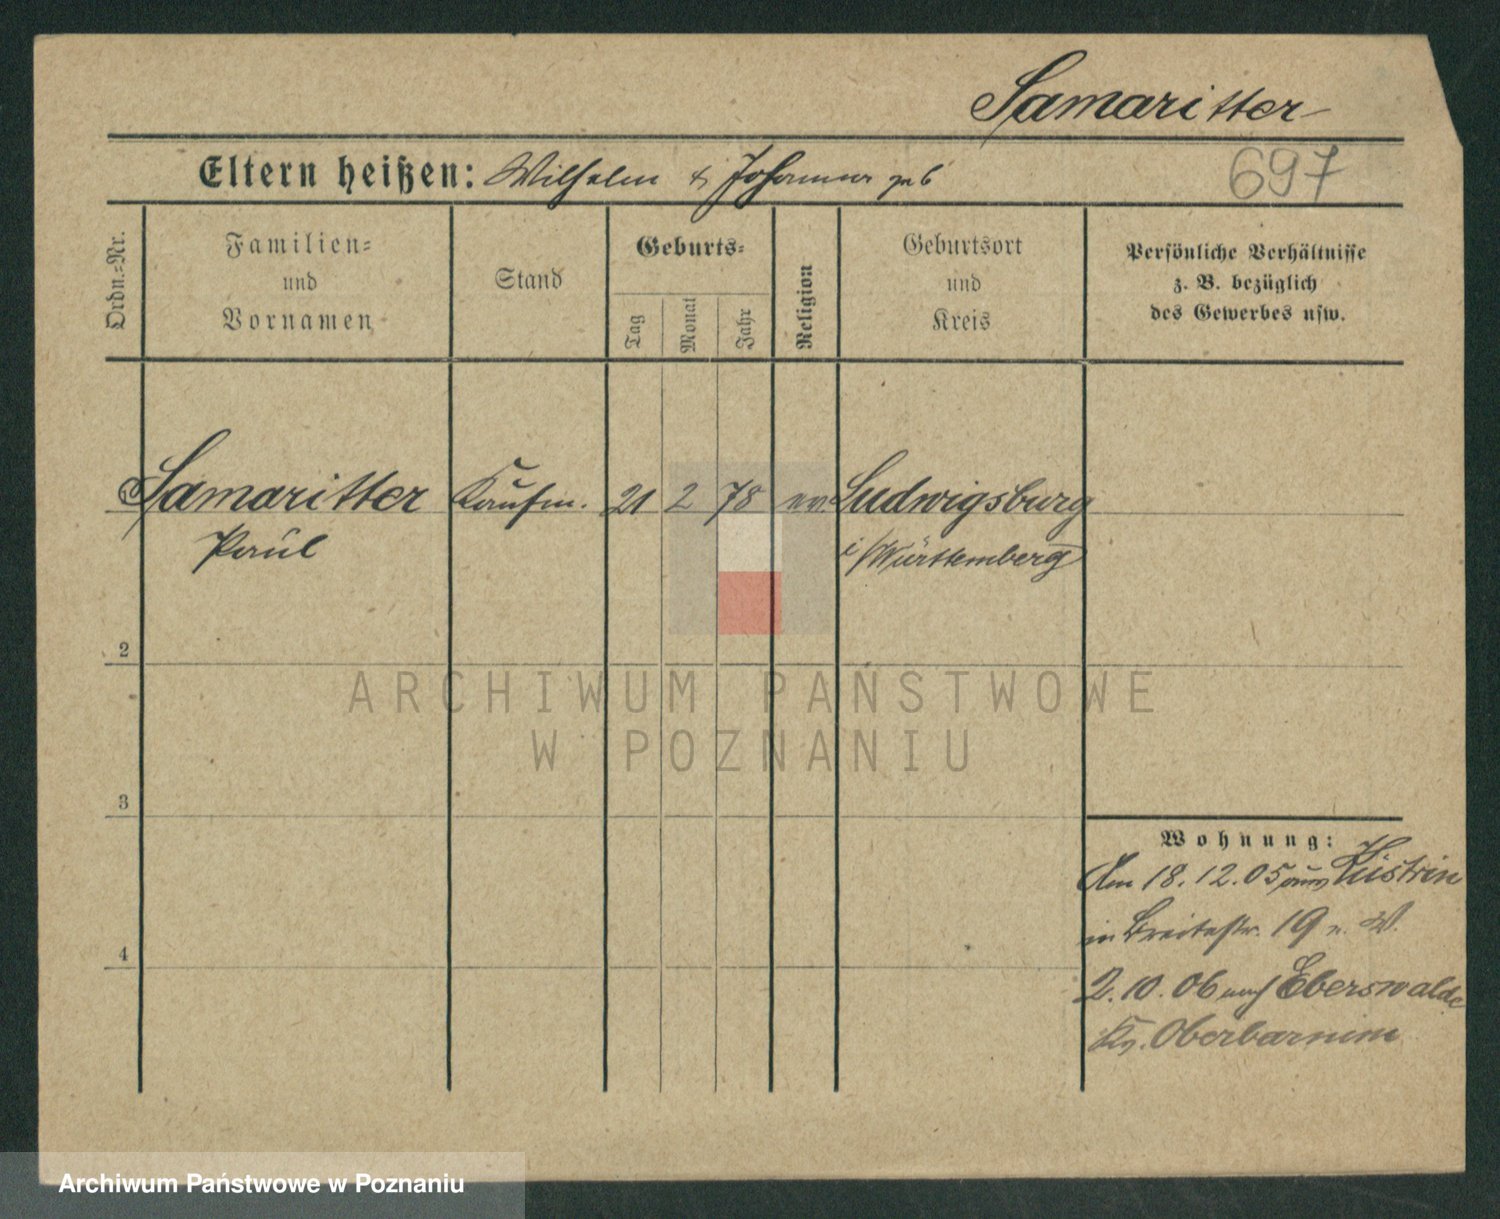 Samaritter
Eltern heißen: Wilhelm & Johanna geb
697
Ordn.-Nr.
Familien-
und
Vornamen
Stand
Geburts-
Tag
Monat
Jahr
Religion
Geburtsort
und
Kreis
Persönliche Verhältnisse
z. B. bezüglich
des Gewerbes usw.
Samaritter Kaufm. 21 2 78 ev. Ludwigsburg
Paul i/Württemberg
2
ARCHIWUM PAŃSTWOWE
W POZNANIU
3
Wohnung:
Am 18.12.05 aus Küstrin
in Breitestr. 19 n. W.
4
2.10.06 nach Eberswalde
Kr. Oberbarnim
Archiwum Państwowe w Poznaniu